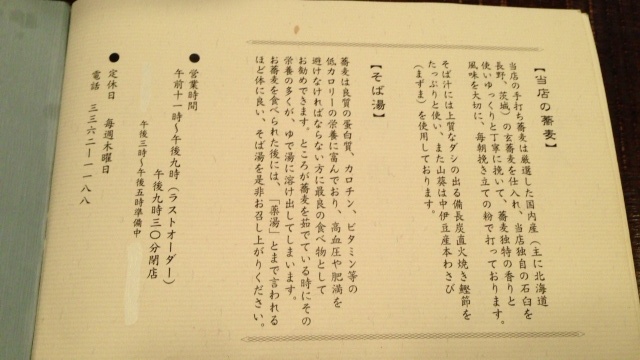 【当店の蕎麦】
当店の手打ち蕎麦は厳選した国内産（主に北海道
長野、茨城）の玄蕎麦を仕入れ、当店独自の石臼を
使いゆっくりと丁寧に挽いて、蕎麦独特の香りと
風味を大切に、毎朝挽き立ての粉で打っております。
そば汁には上質なダシの出る備長炭直火焼き鰹節を
たっぷりと使い、また山葵は中伊豆産本わさび
（まずま）を使用しております。
【そば湯】
蕎麦は良質の蛋白質、カロチン、ビタミン等の
低カロリーの栄養に富んでおり、高血圧や肥満を
避けなければならない方に最良の食べ物として
お勧めできます。ところが蕎麦を茹でている時にその
栄養の多くが、ゆで湯に溶け出してしまいます。
お蕎麦を食べられた後には、「薬湯」とまで言われる
ほど体に良い、そば湯を是非お召し上がりください。
●営業時間
午前十一時〜午後九時（ラストオーダー）
午後九時三〇分閉店
午後三時〜午後五時準備中
●定休日　毎週木曜日
電話　三三六二ー一一八八